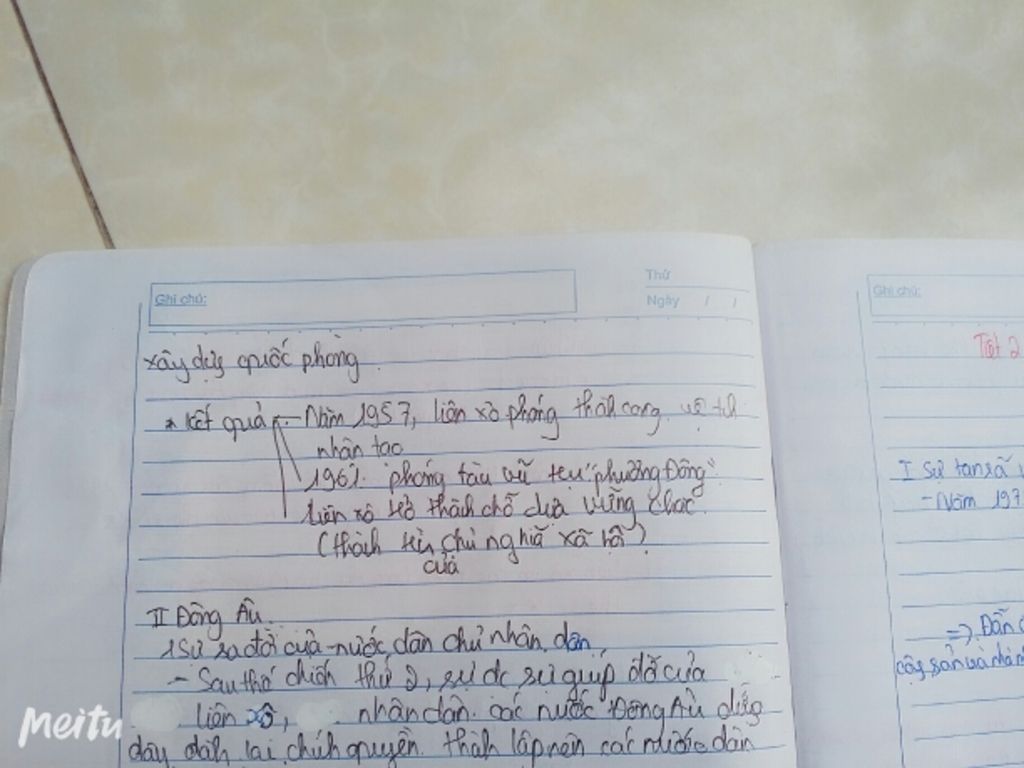 Ghi chú:
Thứ
Ngày / /
xây dựng quốc phòng.
* Kết quả - Năm 1957, liên xô phóng thành công vệ th
nhân tạo
1961. phóng tàu vũ trụ "phương Đông"
liên xô trở thành chỗ dựa vững chắc
(thành trì chủ nghĩa xã hội)
của
II Đông Âu.
1 Sự ra đời của nước dân chủ nhân dân
- Sau thế chiến thứ 2, sự giúp đỡ của
liên xô, nhân dân các nước Đông Âu đứng
dậy đánh lại chính quyền thành lập nên các nước dân
Ghi chú:
Tiết 2
I Sự tan rã
- Năm 197
=> Dẫn
cộng sản và
Meitu